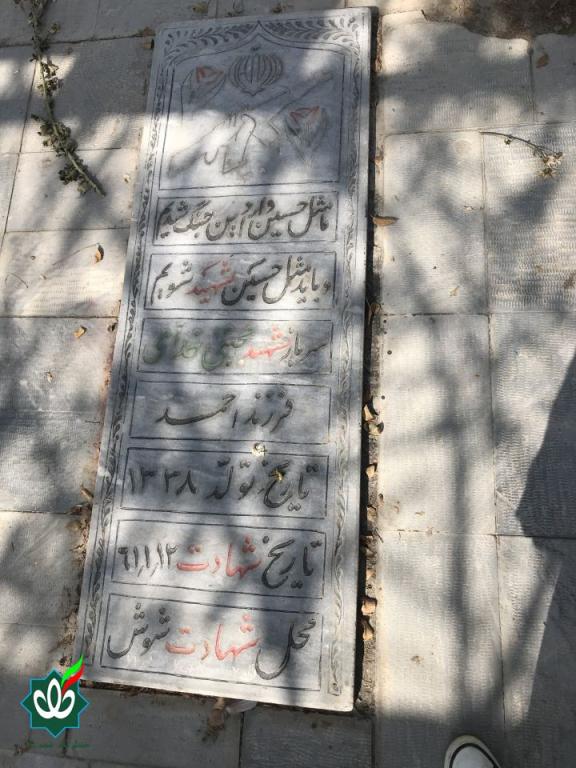 ما مثل حسین وارد این جنگ شدیم
و باید مثل حسین شهید شویم
سرباز شهید مجتبی خدامی
فرزند احمد
تاریخ تولد ۱۳۳۸
تاریخ شهادت ۶۱٫۱٫۱۲
محل شهادت شوش